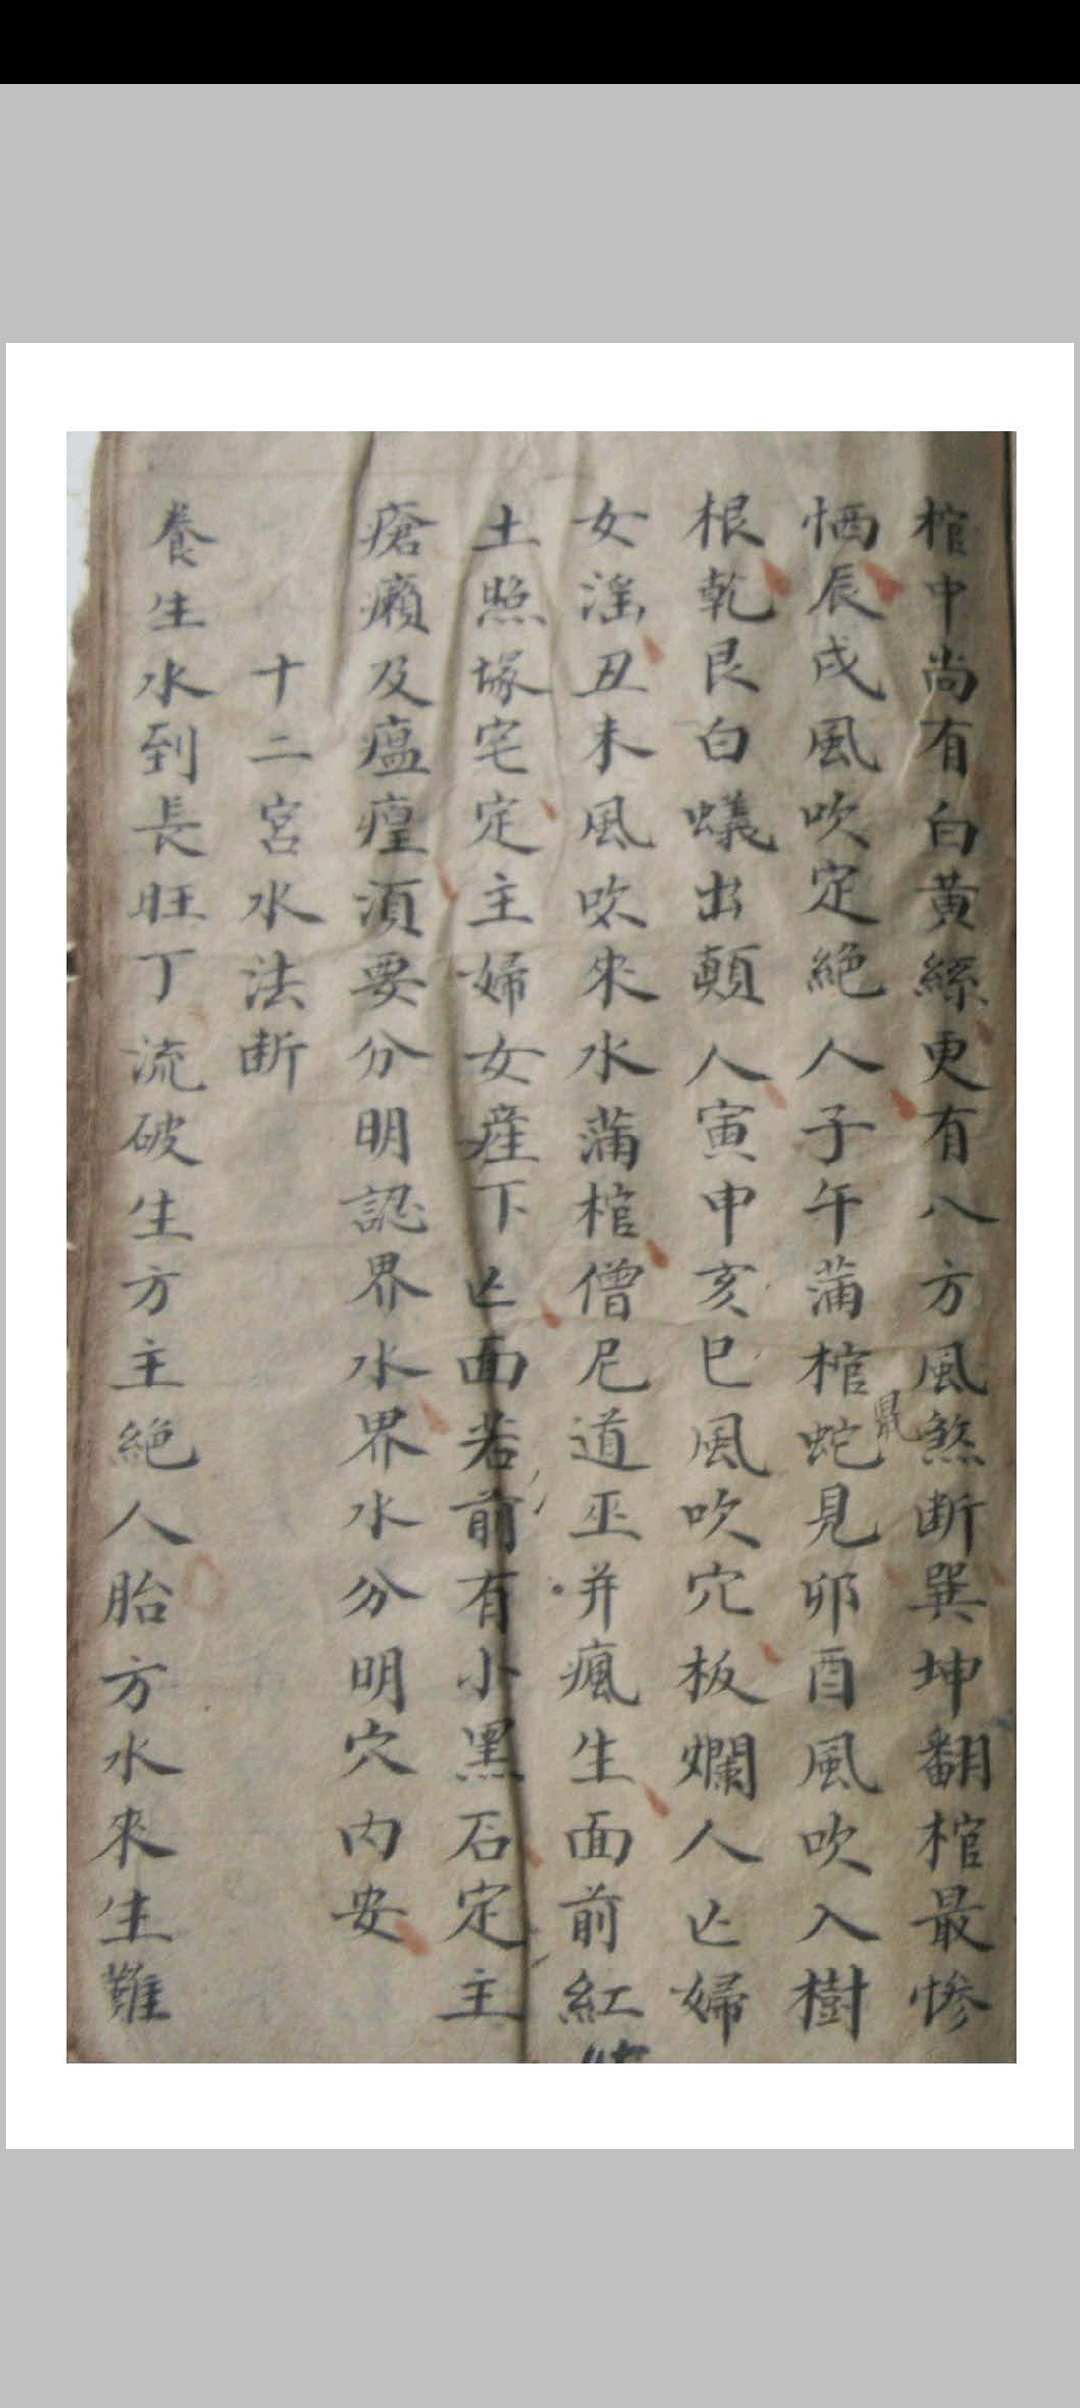 棺中尚有白黃絲更有八方風煞断巽坤翻棺最惨
恓辰戌風吹定絕人子午蒲棺蛇鼠見卯酉風吹入樹
根乾艮白蟻出顛人寅申亥巳風吹穴板爛人亡婦
女滛丑未風吹來水蒲棺僧尼道巫并瘋生面前紅
土照塚宅定主婦女産下亡面若前有小黑石定主
瘡癩及瘟瘟湏要分明認界水界水分明穴内安
十二宮水法断
養生水到長旺丁流破生方主絕人胎方水來生難